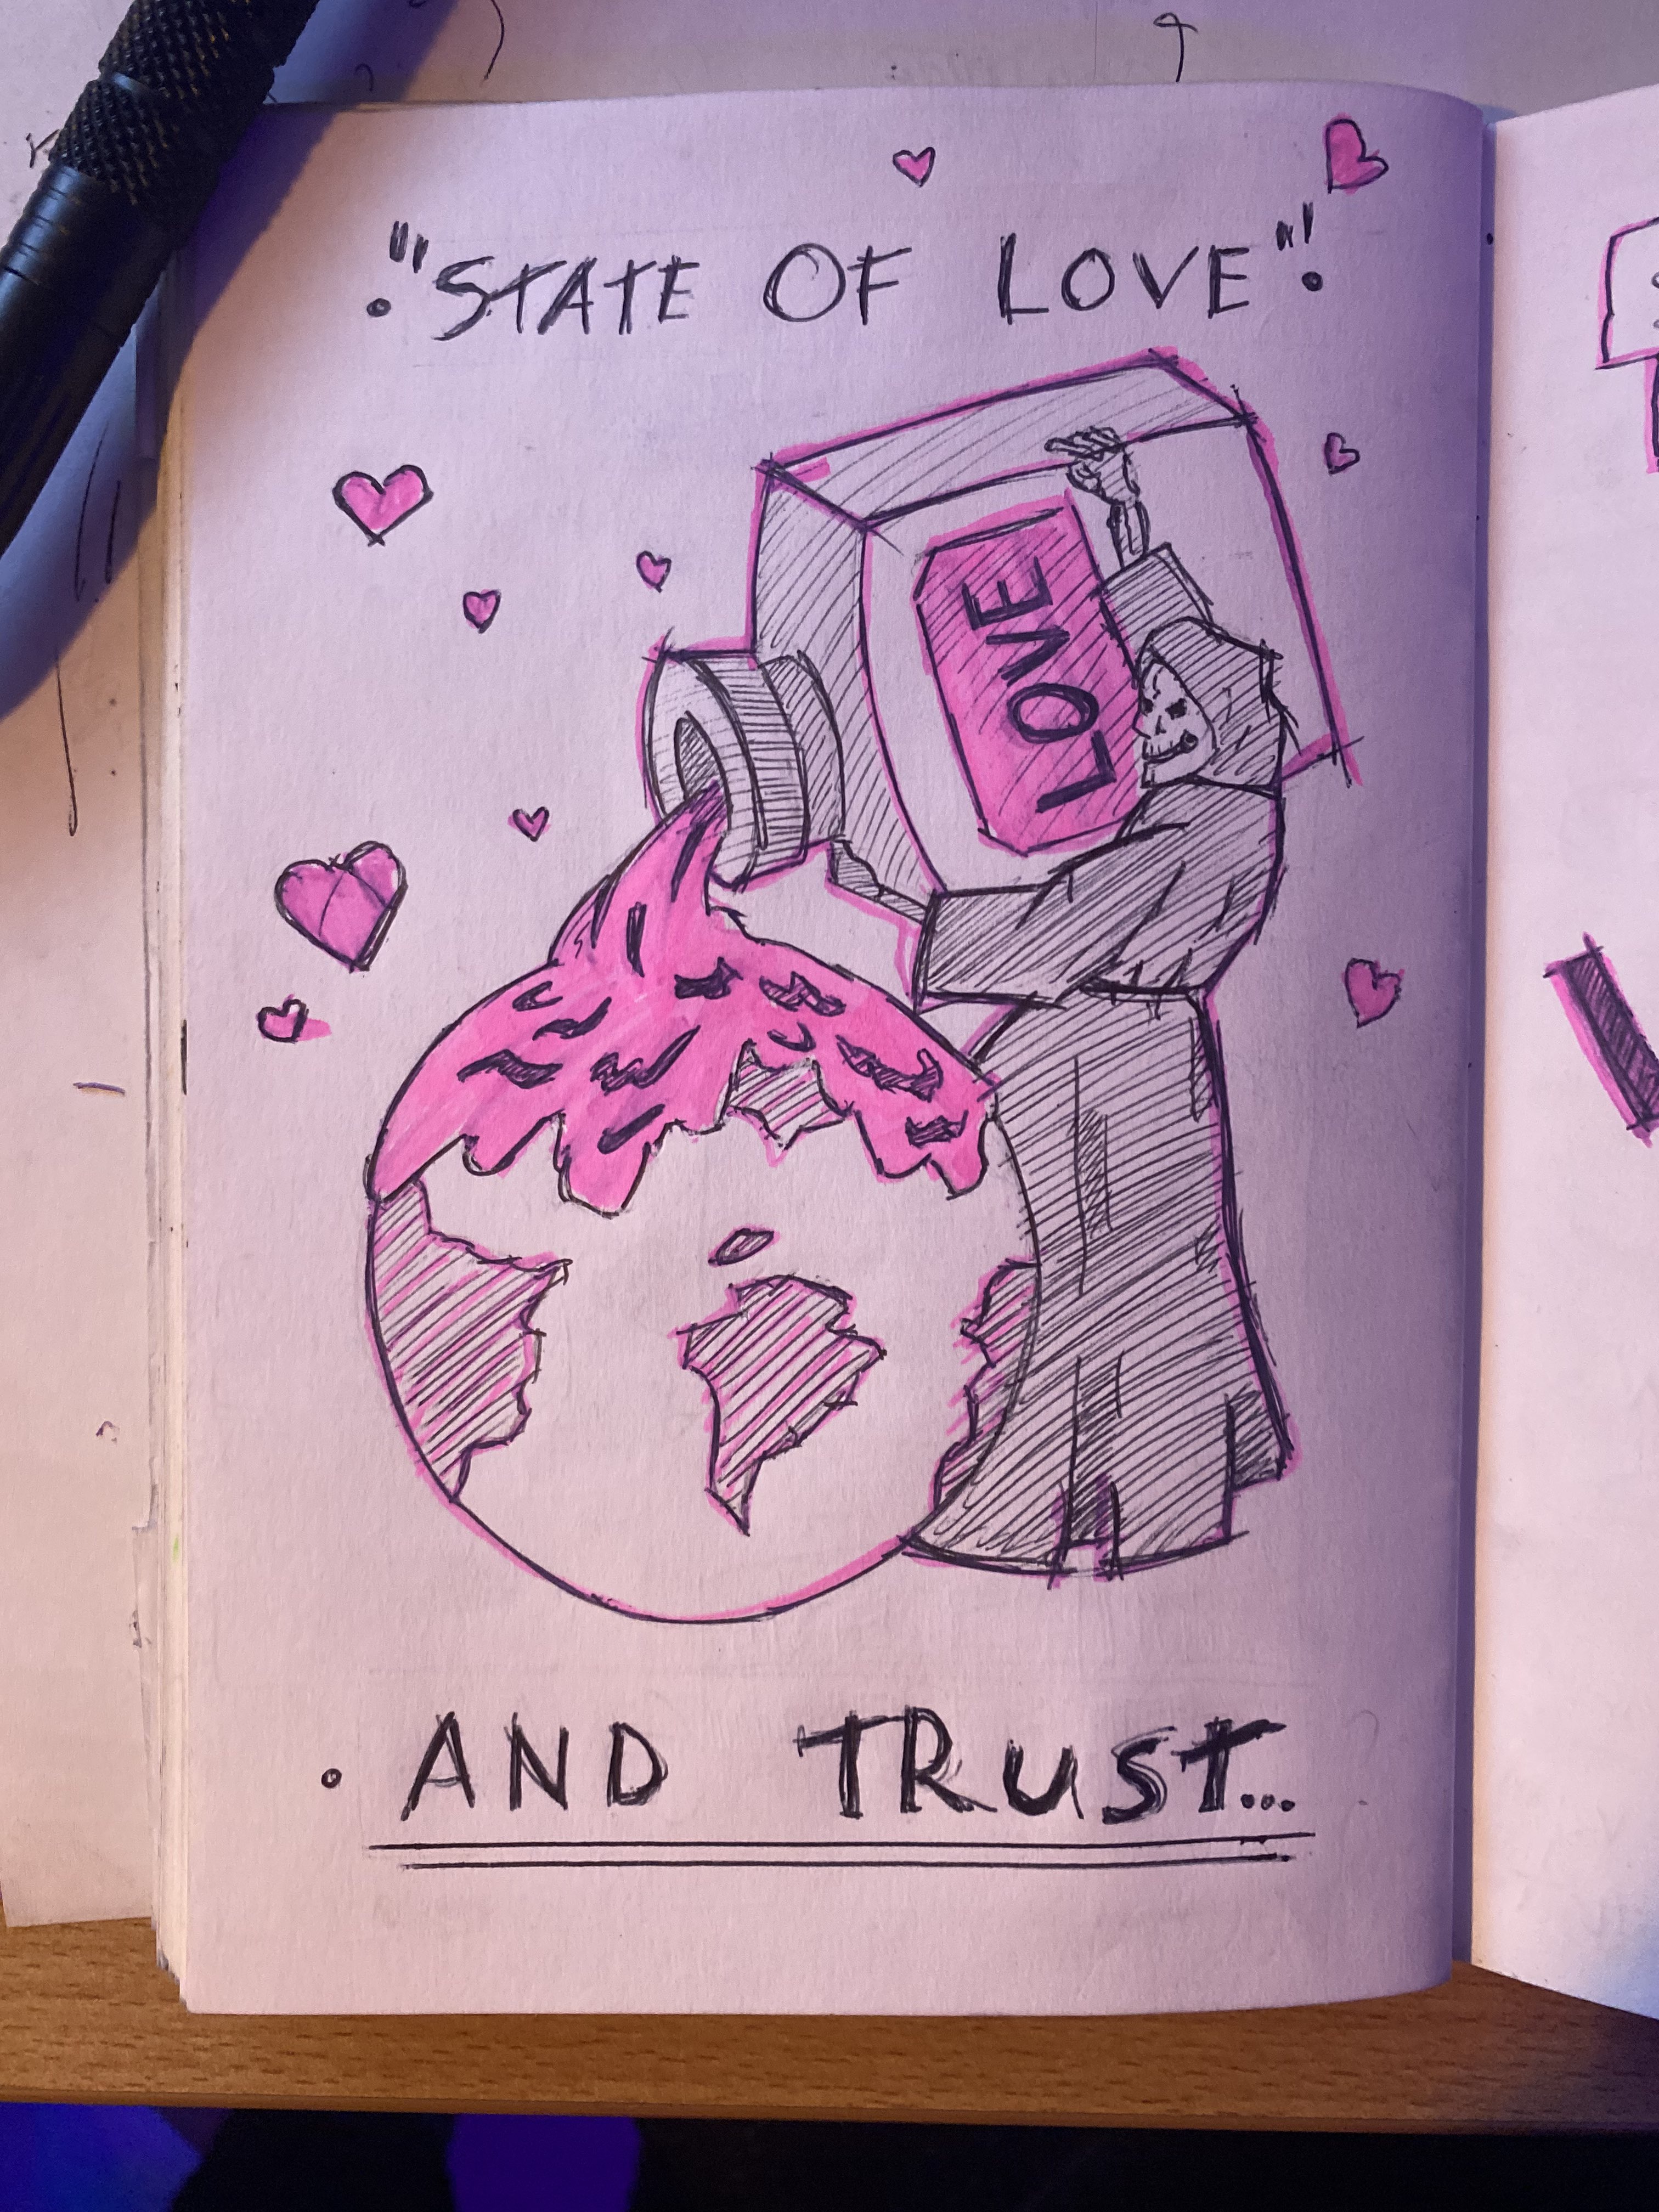 "STATE OF LOVE"
LOVE
AND TRUST...